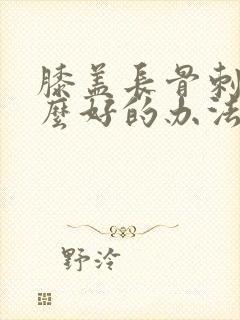 膝盖長骨刺
麼好的办法
野泠